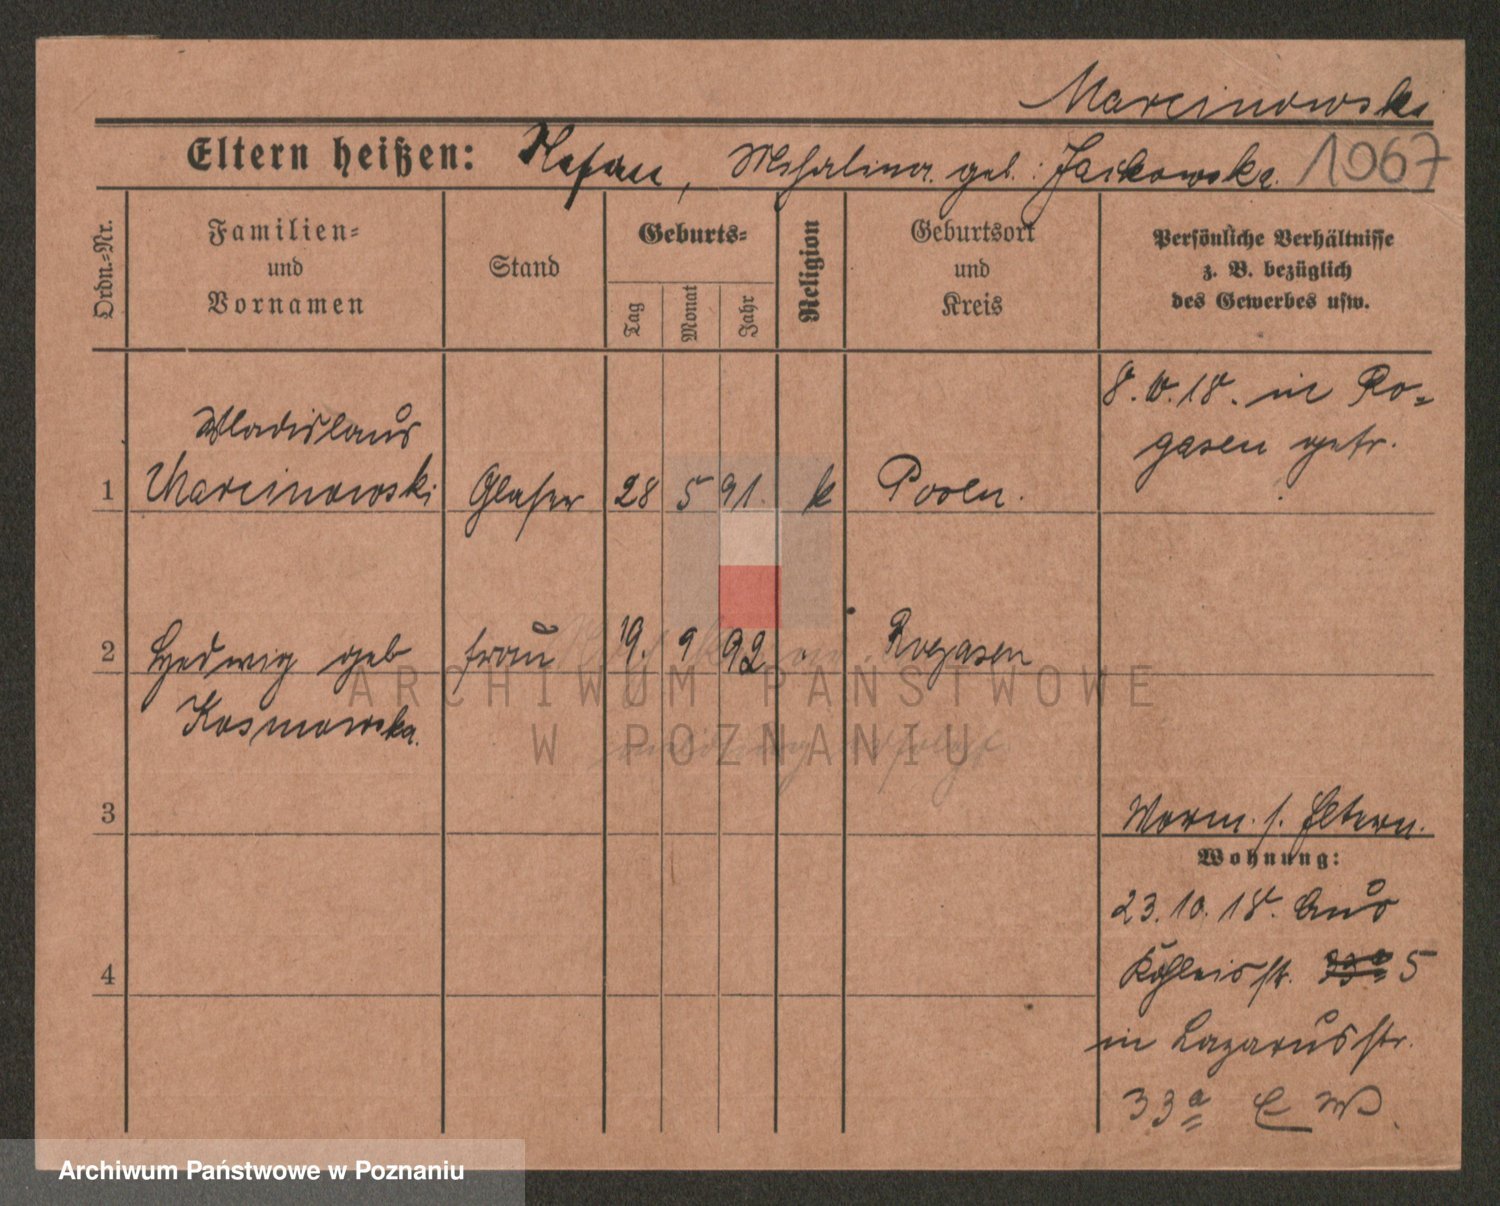 Marcinowski
Eltern heißen: Stefan, Michalina geb. Jackowska. 1067
Ordn.-Nr.
Familien-
und
Vornamen
Stand
Geburts-
Tag
Monat
Jahr
Religion
Geburtsort
und
Kreis
Persönliche Verhältnisse
z. B. bezüglich
des Gewerbes usw.
8. 10. 18. in Ro-
gasen getr.
Wladislaus
1 Marcinowski Glaser 28 5 91. k Posen.
2 Hedwig geb frau 19. 9 92 " Rogasen
Kosmowska.
3
Worm. s. Eltern.
Wohnung:
23.10.18. aus
str. 5
4
in Lazarusstr.
33a
ARCHIWUM PAŃSTWOWE
W POZNANIU
Archiwum Państwowe w Poznaniu